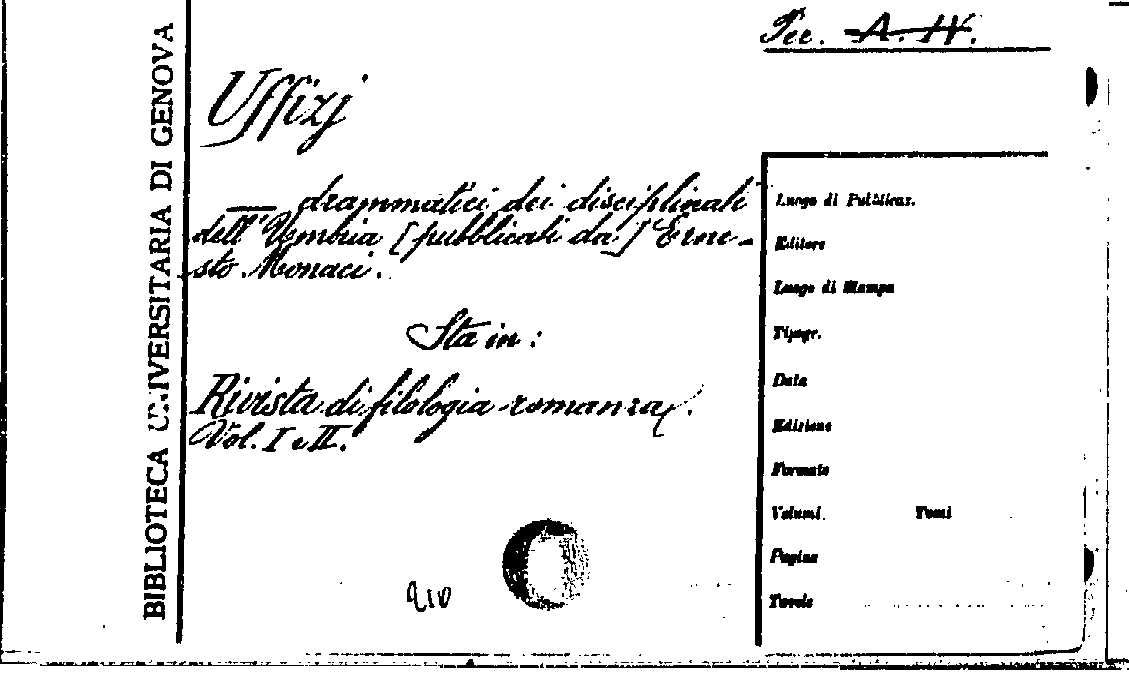 Pee. A. IV.
BIBLIOTECA UNIVERSITARIA DI GENOVA
Uffizj
— drammatici dei disciplinati
dell'Umbria [pubblicati da] Erne-
sto Monaci.
Sta in:
Rivista di filologia romanza.
Vol. I e II.
210
Luogo di Pubblicaz.
Editore
Luogo di Stampa
Tipogr.
Data
Edizione
Formato
Volumi. Tomi
Pagine
Tavole